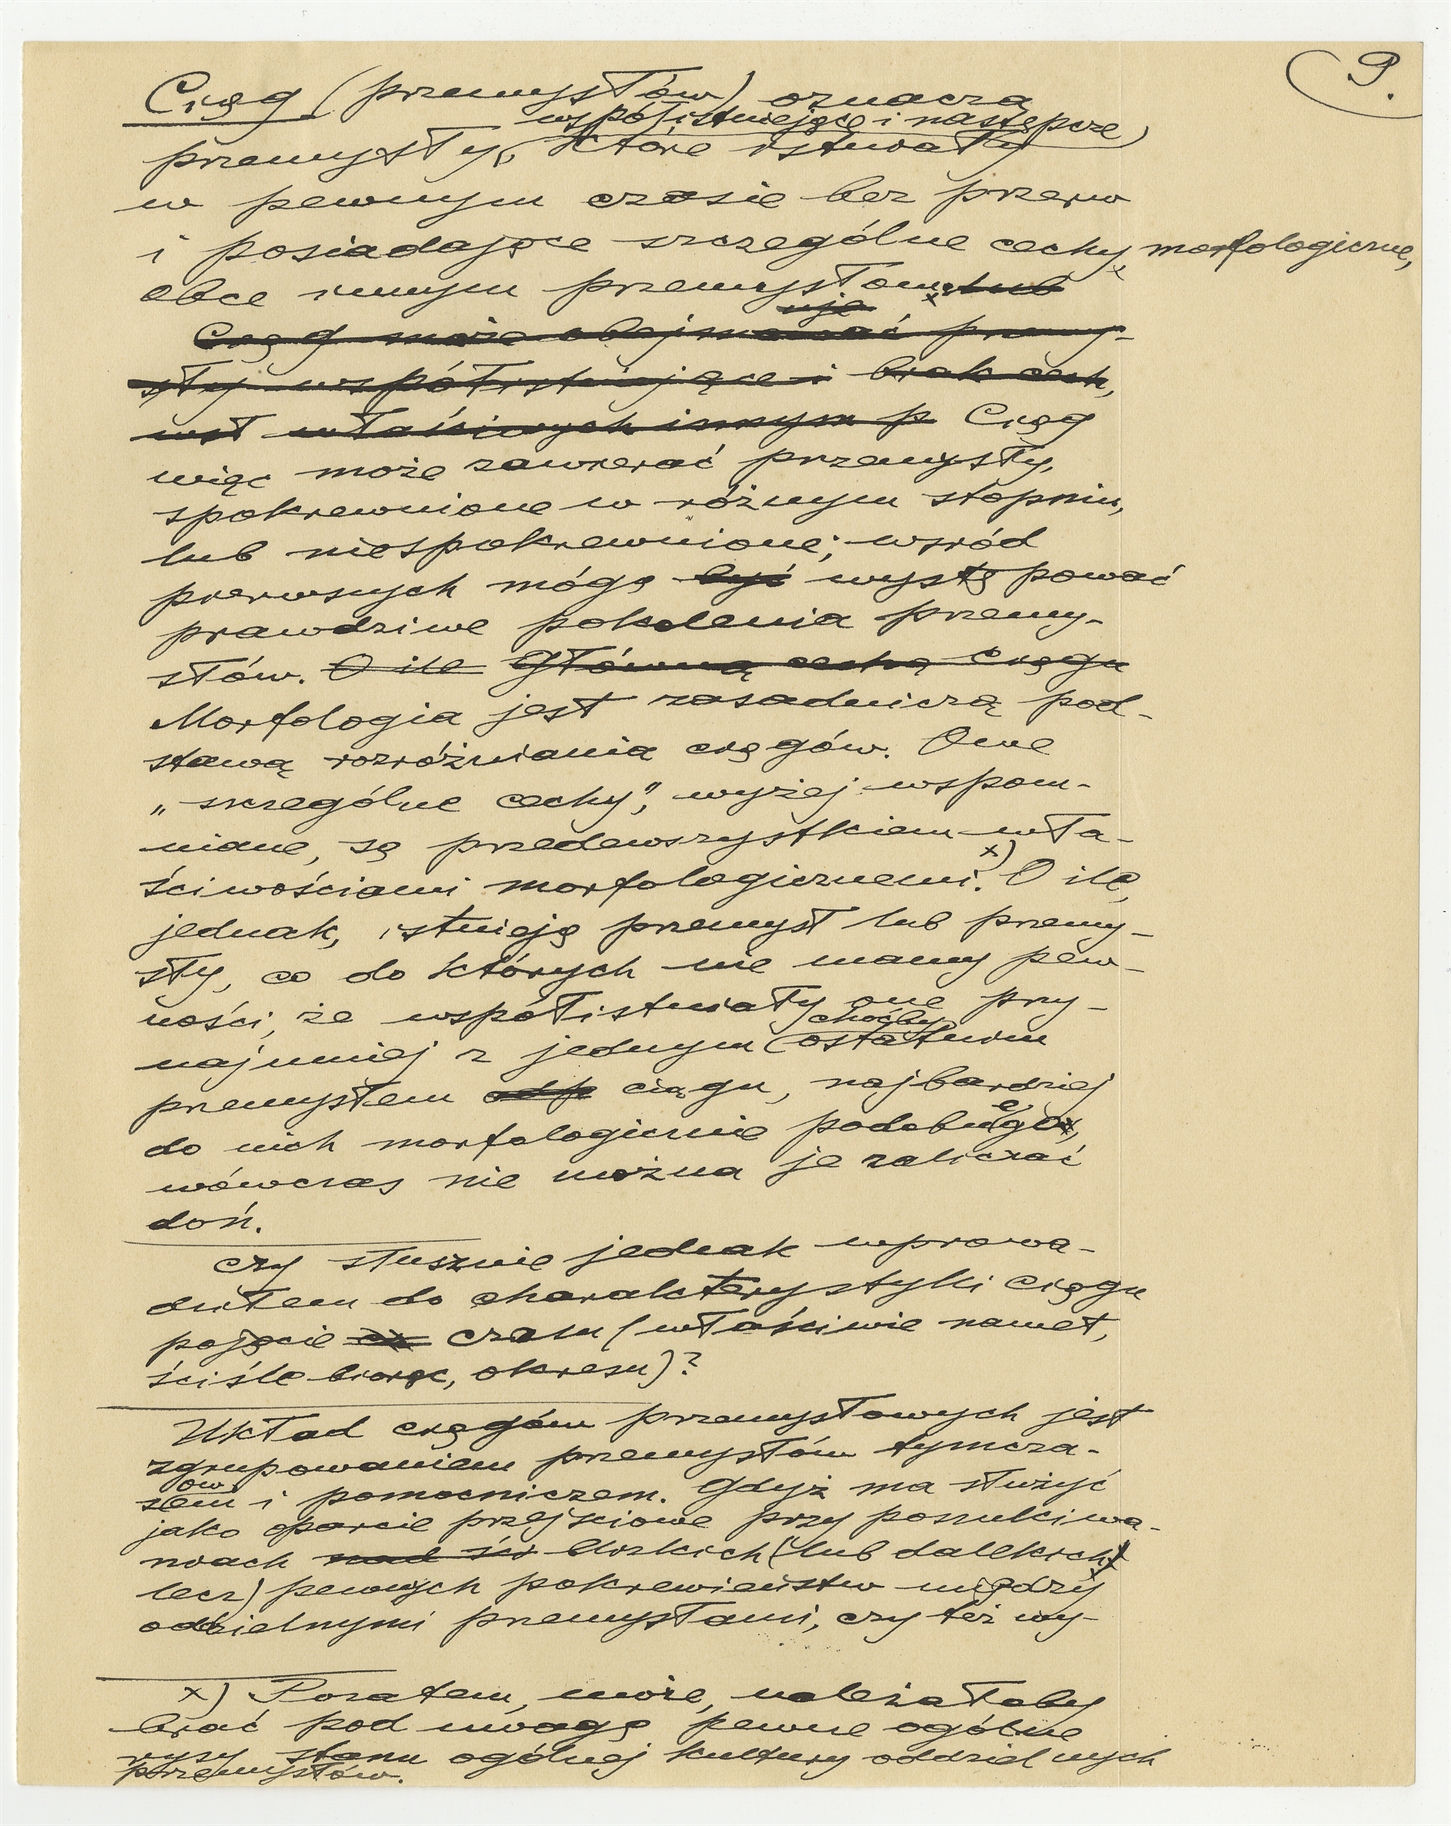 9.
Ciąg (przemysłów) oznacza
współistniejące i następcze
przemysły, które istniały
w pewnym czasie bez przerw
i posiadające szczególne cechy morfologiczne,
obce innym przemysłom. lub
uje
Ciąg może obejmować przemy-
sły współistniejące i brak cech,
wł właściwych innym p Ciąg
więc może zawierać przemysły,
spokrewnione w różnym stopniu,
lub niespokrewnione; wśród
pierwszych mogą być występować
prawdziwe pokolenia przemy-
słów. O ile Główną cechą ciągu
Morfologia jest zasadniczą pod-
stawą rozróżniania ciągów. Owe
„szczególne cechy”, wyżej wspom-
niane, są przedewszystkiem wła-
ściwościami morfologicznemi. x) O ile,
jednak, istnieją przemysł lub przemy-
sły, co do których nie mamy pew-
ności, że współistniały one przy-
najmniej z jednym (choćby ostatnim
przemysłem odp ciągu, najbardziej
do nich morfologicznie podobnego,
wówczas nie można je zaliczać
doń.
Czy słusznie jednak wprowa-
dziłem do charakterystyki ciągu
pojęcie cz czasu (właściwie nawet,
ściśle biorąc, okresu)?
Układ ciągów przemysłowych jest
zgrupowaniem przemysłów tymcza-
sowem i pomocniczem. Gdyż ma służyć
jako oparcie przejściowe przy poszukiwa-
niach nad śr bliskich (lub dalekich,
lecz) pewnych pokrewieństw między
oddzielnymi przemysłami, czy też wy-
x) Pozatem, może, należałoby
brać pod uwagę pewne ogólne
rysy stanu ogólnej kultury oddzielnych
przemysłów.